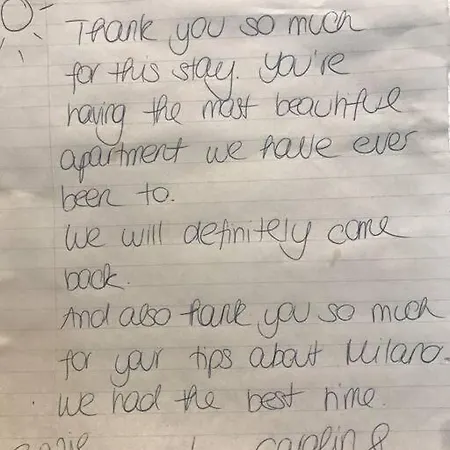 Thank you so much
for this stay. You're
having the most beautiful
apartment we have ever
been to.
We will definitely come
back.
And also thank you so much
for your tips about Milano.
We had the best time.